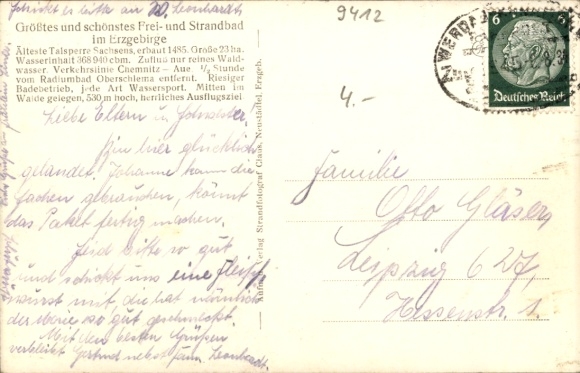 schickt es bitte an W. Leonhardt
Größtes und schönstes Frei- und Strandbad
im Erzgebirge
Älteste Talsperre Sachsens, erbaut 1485. Größe 23 ha.
Wasserinhalt 368 940 cbm. Zufluß nur reines Wald-
wasser. Verkehrslinie Chemnitz - Aue ½ Stunde
vom Radiumbad Oberschlema entfernt. Riesiger
Badebetrieb, jede Art Wassersport. Mitten im
Walde gelegen, 530 m hoch, herrliches Ausflugsziel
Liebe Eltern u.
Bin hier glücklich
gelandet. Johanne kann die
Sachen gebrauchen, könnt
das Paket fertig machen.
Seid bitte so gut
und schickt uns eine Fleisch-
wurst mit, die hat nämlich
so gut geschmeckt.
Mit den besten Grüßen
verbleibt Gertrud nebst Fam. Leonhardt.
Verlag Strandfotograf Claus, Neustädtel, Erzgeb.
9412
4.-
6
Deutsches Reich
Familie
Otto Gläser,
Leipzig G 27,